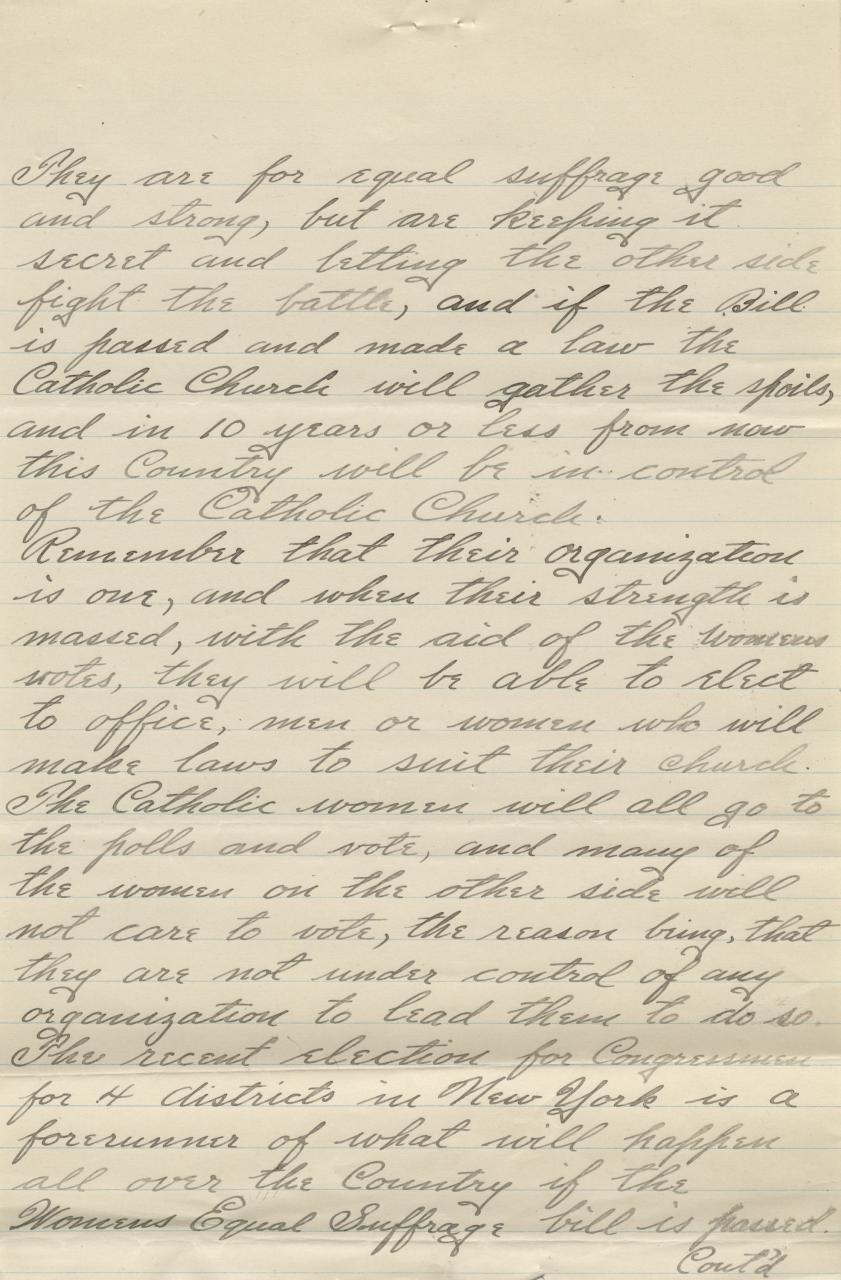 They are for equal suffrage good
and strong, but are keeping it
secret and letting the other side
fight the battle, and if the Bill
is passed and made a law the
Catholic Church will gather the spoils,
and in 10 years or less from now
this Country will be in control
of the Catholic Church.
Remember that their organization
is one, and when their strength is
massed, with the aid of the womens
votes, they will be able to elect
to office, men or women who will
make laws to suit their church.
The Catholic women will all go to
the polls and vote, and many of
the women on the other side will
not care to vote, the reason being, that
they are not under control of any
organization to lead them to do so.
The recent election for Congressmen
for 4 districts in New York is a
forerunner of what will happen
all over the Country if the
Womens Equal Suffrage bill is passed.
Cont'd